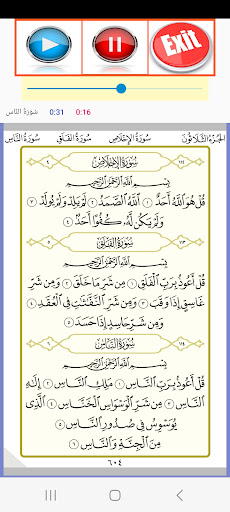 Exit
سورة الناس
0:31
0:16
الجزء الثلاثون
سورة الإخلاص
سورة الفلق
سورة الناس
سورة الإخلاص
بسم الله الرحمن الرحيم
قُلْ هُوَ ٱللَّهُ أَحَدٌ ١ ٱللَّهُ ٱلصَّمَدُ ٢ لَمْ يَلِدْ وَلَمْ يُولَدْ ٣
وَلَمْ يَكُن لَّهُۥ كُفُوًا أَحَدٌ ٤
سورة الفلق
بسم الله الرحمن الرحيم
قُلْ أَعُوذُ بِرَبِّ ٱلْفَلَقِ ١ مِن شَرِّ مَا خَلَقَ ٢ وَمِن شَرِّ
غَاسِقٍ إِذَا وَقَبَ ٣ وَمِن شَرِّ ٱلنَّفَّٰثَٰتِ فِى ٱلْعُقَدِ ٤
وَمِن شَرِّ حَاسِدٍ إِذَا حَسَدَ ٥
سورة الناس
بسم الله الرحمن الرحيم
قُلْ أَعُوذُ بِرَبِّ ٱلنَّاسِ ١ مَلِكِ ٱلنَّاسِ ٢ إِلَٰهِ
ٱلنَّاسِ ٣ مِن شَرِّ ٱلْوَسْوَاسِ ٱلْخَنَّاسِ ٤ ٱلَّذِى
يُوَسْوِسُ فِى صُدُورِ ٱلنَّاسِ ٥
مِنَ ٱلْجِنَّةِ وَٱلنَّاسِ ٦
٦٠٤